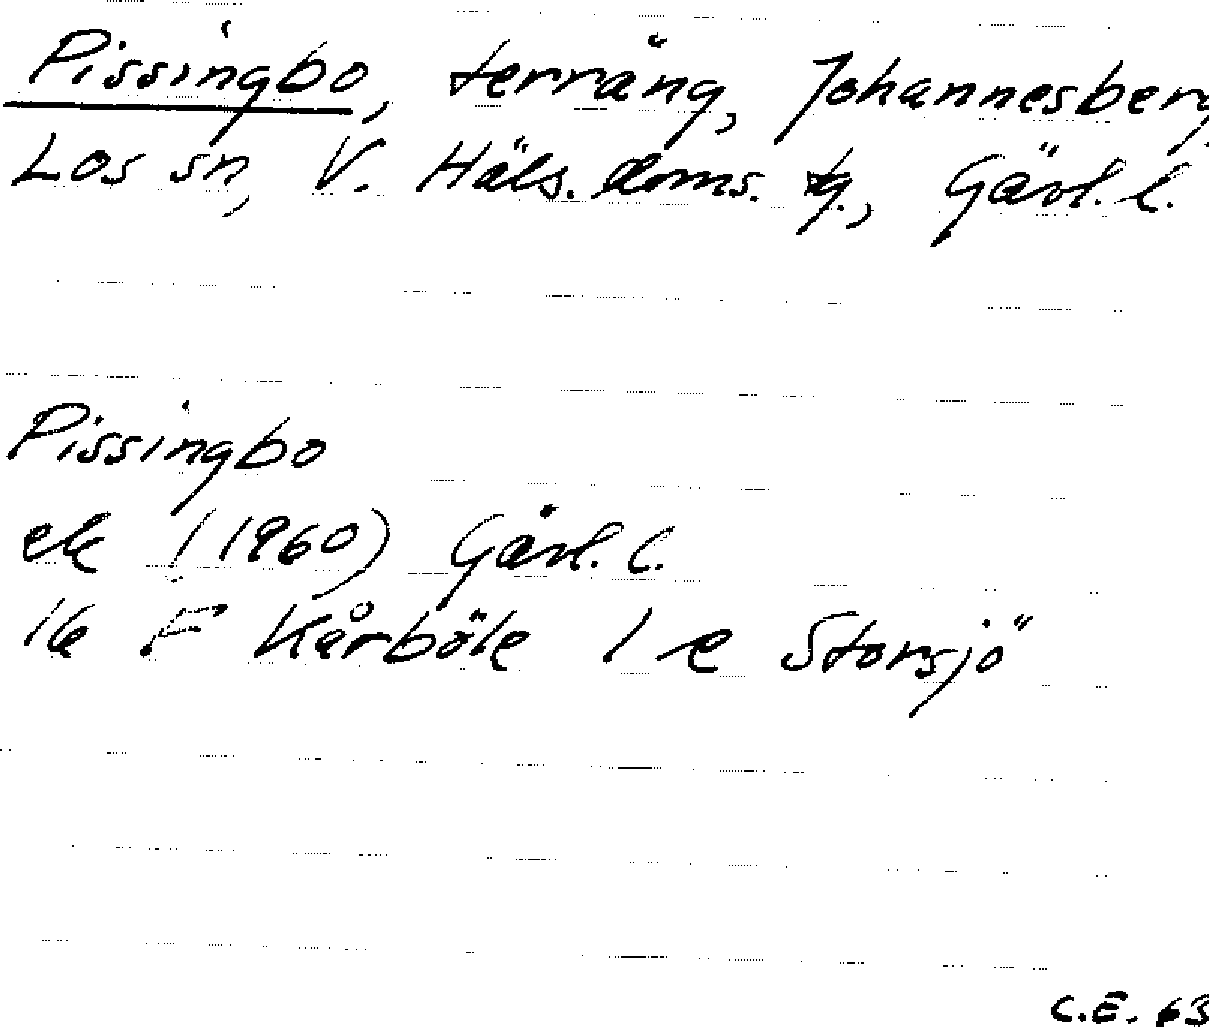 Pissingbo, terräng, Johannesberg,
Los sn, V. Häls. doms. tg., Gävl. l.
Pissingbo
ek (1960) Gävl. l.
16 F Kårböle 1 e Storsjö
C.E. 63